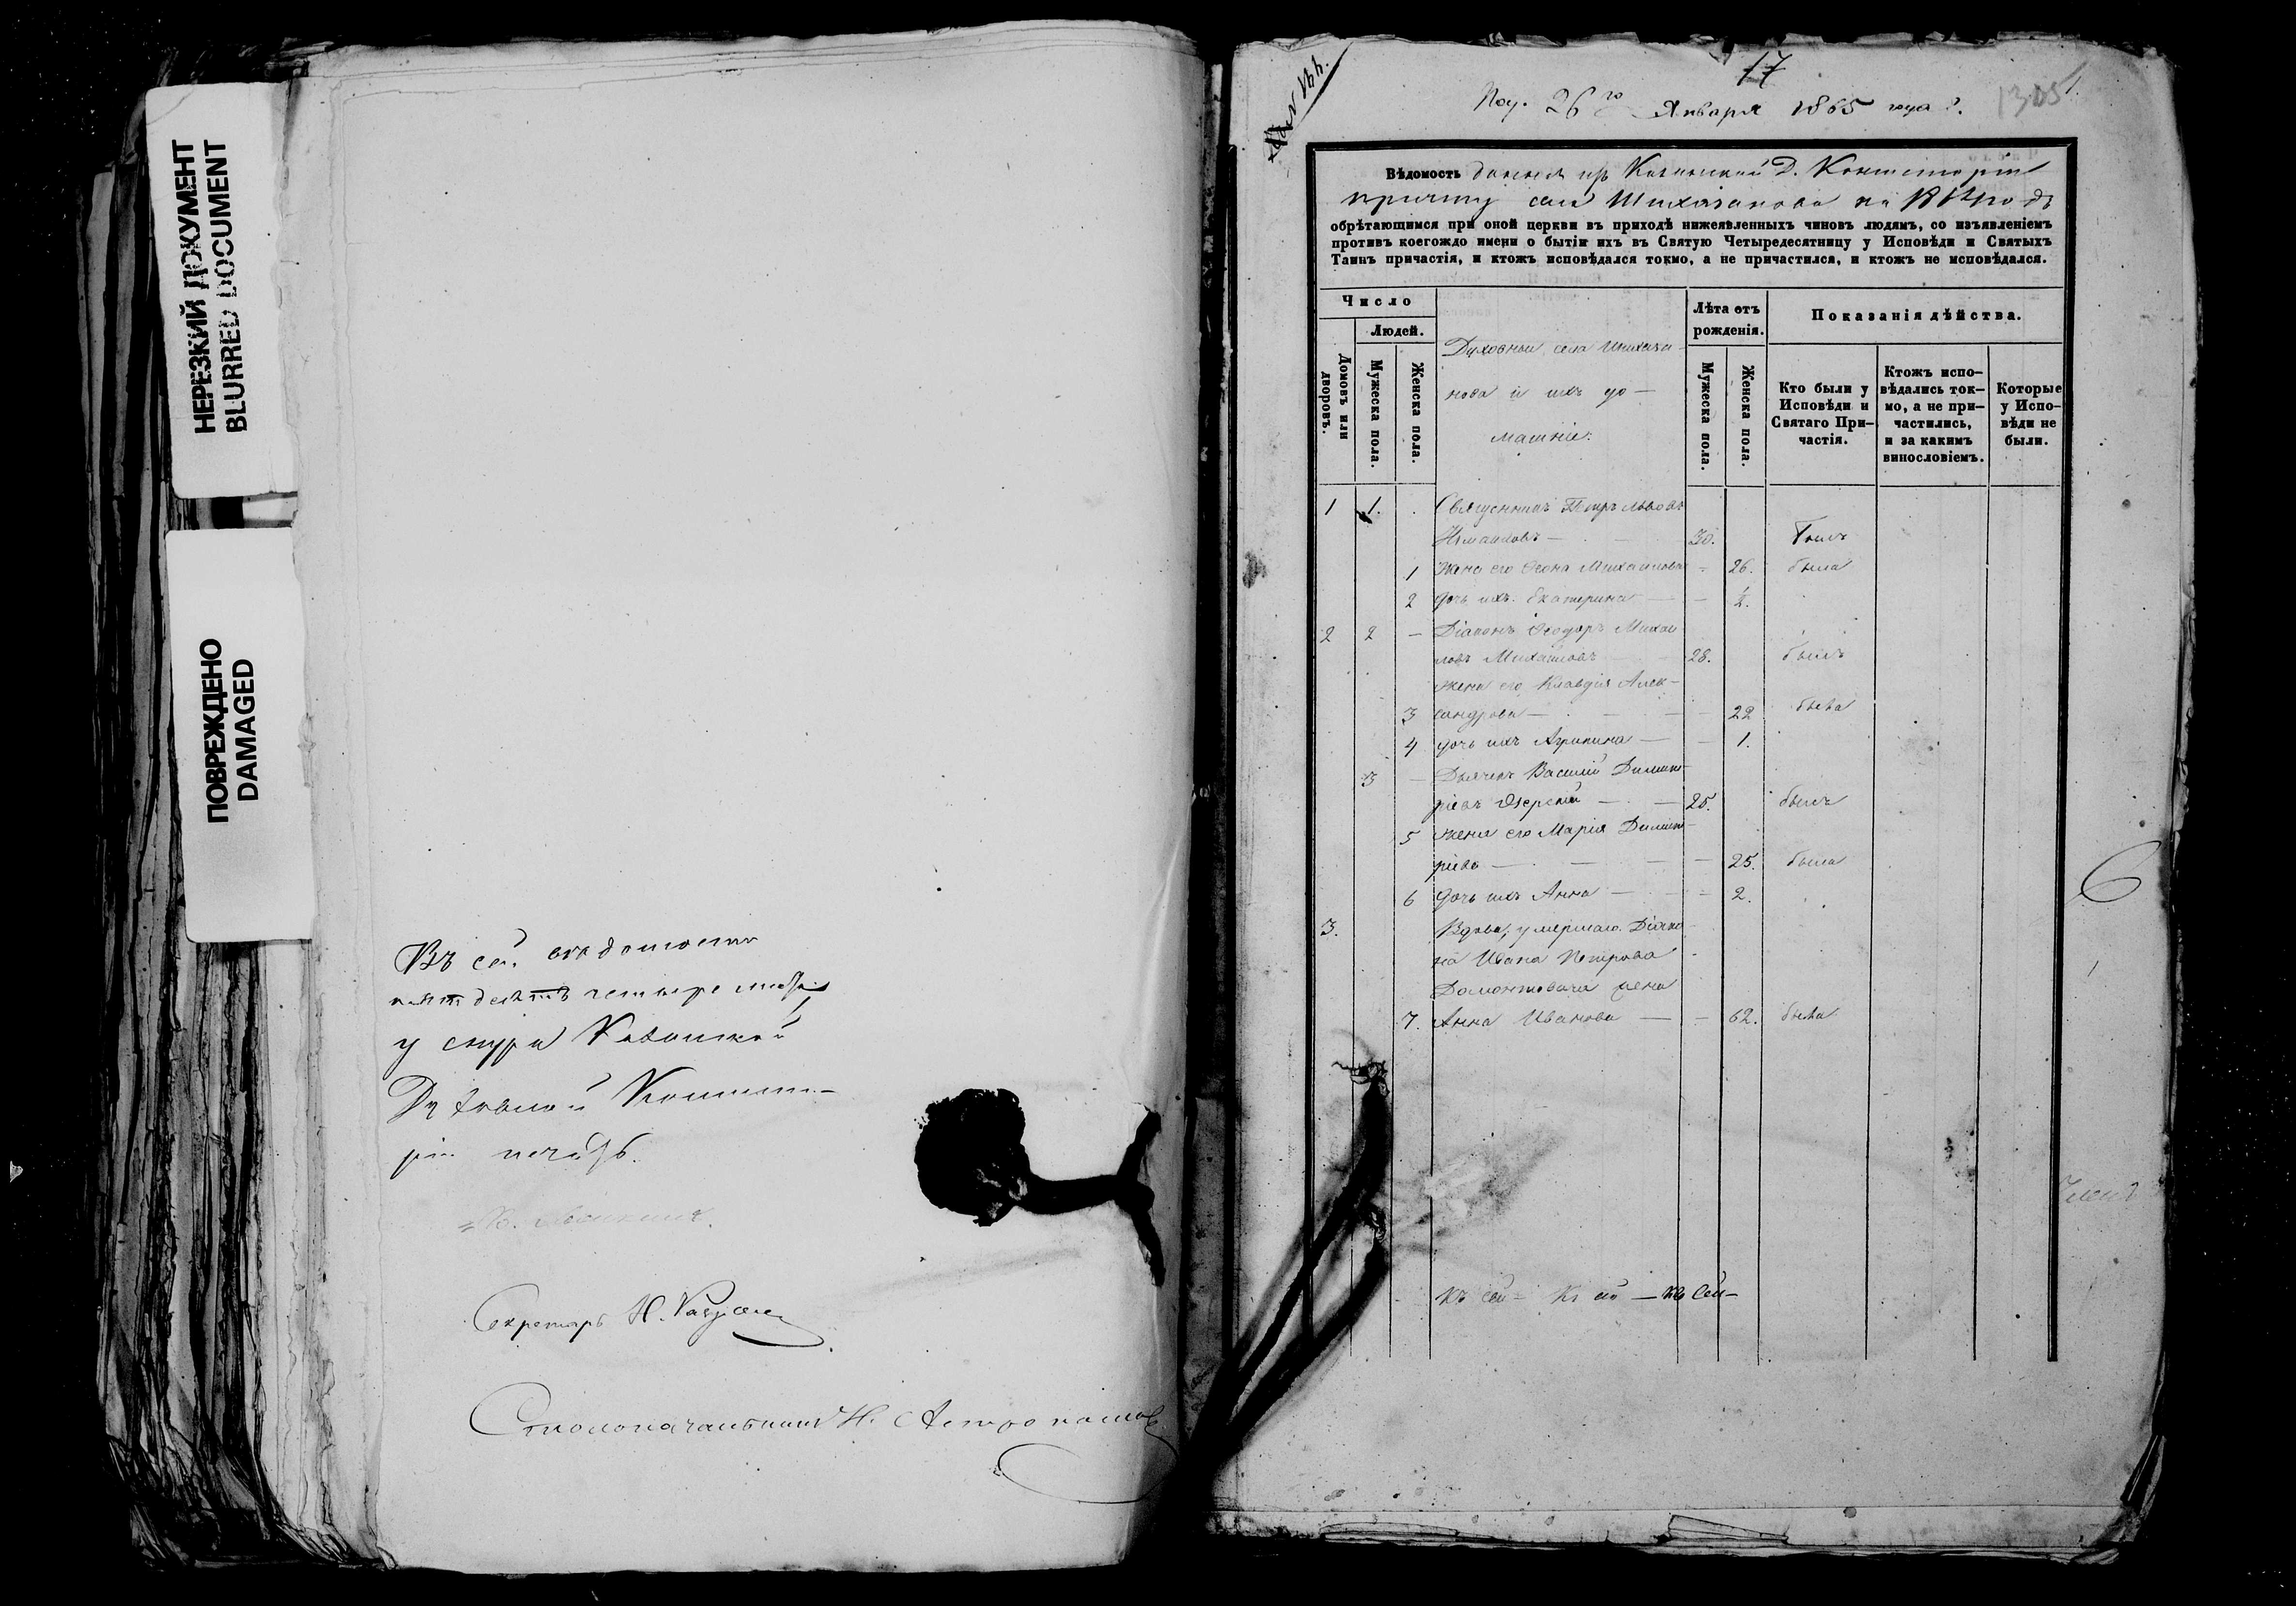 НЕРЕЗКИЙ ДОКУМЕНТ
BLURRED DOCUMENT
ПОВРЕЖДЕНО
DAMAGED
Въ сей ведомости
пятьдесятъ четыре листа
у снура Казанской
Духовной Консисто-
ріи печать.
Секретарь Н.
Столоначальникъ Н.
17
Пол. 26го Января 1865 года.
1305
1.
Вѣдомость данная изъ Казанской Д. Консисторіи
причту села Шихазанова на 1864 годъ
обрѣтающимся при оной церкви въ приходѣ нижеявленныхъ чиновъ людямъ, со изъявленіемъ
противъ коегождо имени о бытіи ихъ въ Святую Четыредесятницу у Исповѣди и Святыхъ
Таинъ причастія, и ктожъ исповѣдался токмо, а не причастился, и ктожъ не исповѣдался.
Число
Людей.
Домовъ или дворовъ.
Мужеска пола.
Женска пола.
Духовные села Шихаза-
нова и ихъ до-
машніе.
Лѣта отъ
рожденія.
Мужеска пола.
Женска пола.
Показанія дѣйства.
Кто были у
Исповѣди и
Святаго При-
частія.
Ктожъ испо-
вѣдались ток-
мо, а не при-
частились,
и за какимъ
винословіемъ.
Которые
у Испо-
вѣди не
были.
1 1. Священникъ Петръ Львовъ
30. Былъ
1 Жена его Михайлова 26. была
2 Дочь ихъ Екатерина ½.
2 2 Діаконъ Ѳеодоръ Михаи-
ловъ Михайловъ 28. былъ
Жена его Клавдія Алек-
3 сандрова 22 была
4 дочь ихъ Агрипина 1.
3 Дьячекъ Василій Димит-
ріевъ Озерскій 25. былъ
5 жена его Марія Димит-
ріева 25. была
6 Дочь ихъ Анна 2.
3. Вдова, умершаго Діако-
на Ивана Петрова
Домонтовича жена
7. Анна Иванова 62. была
6
Къ сей – Къ сей – Къ Сей –